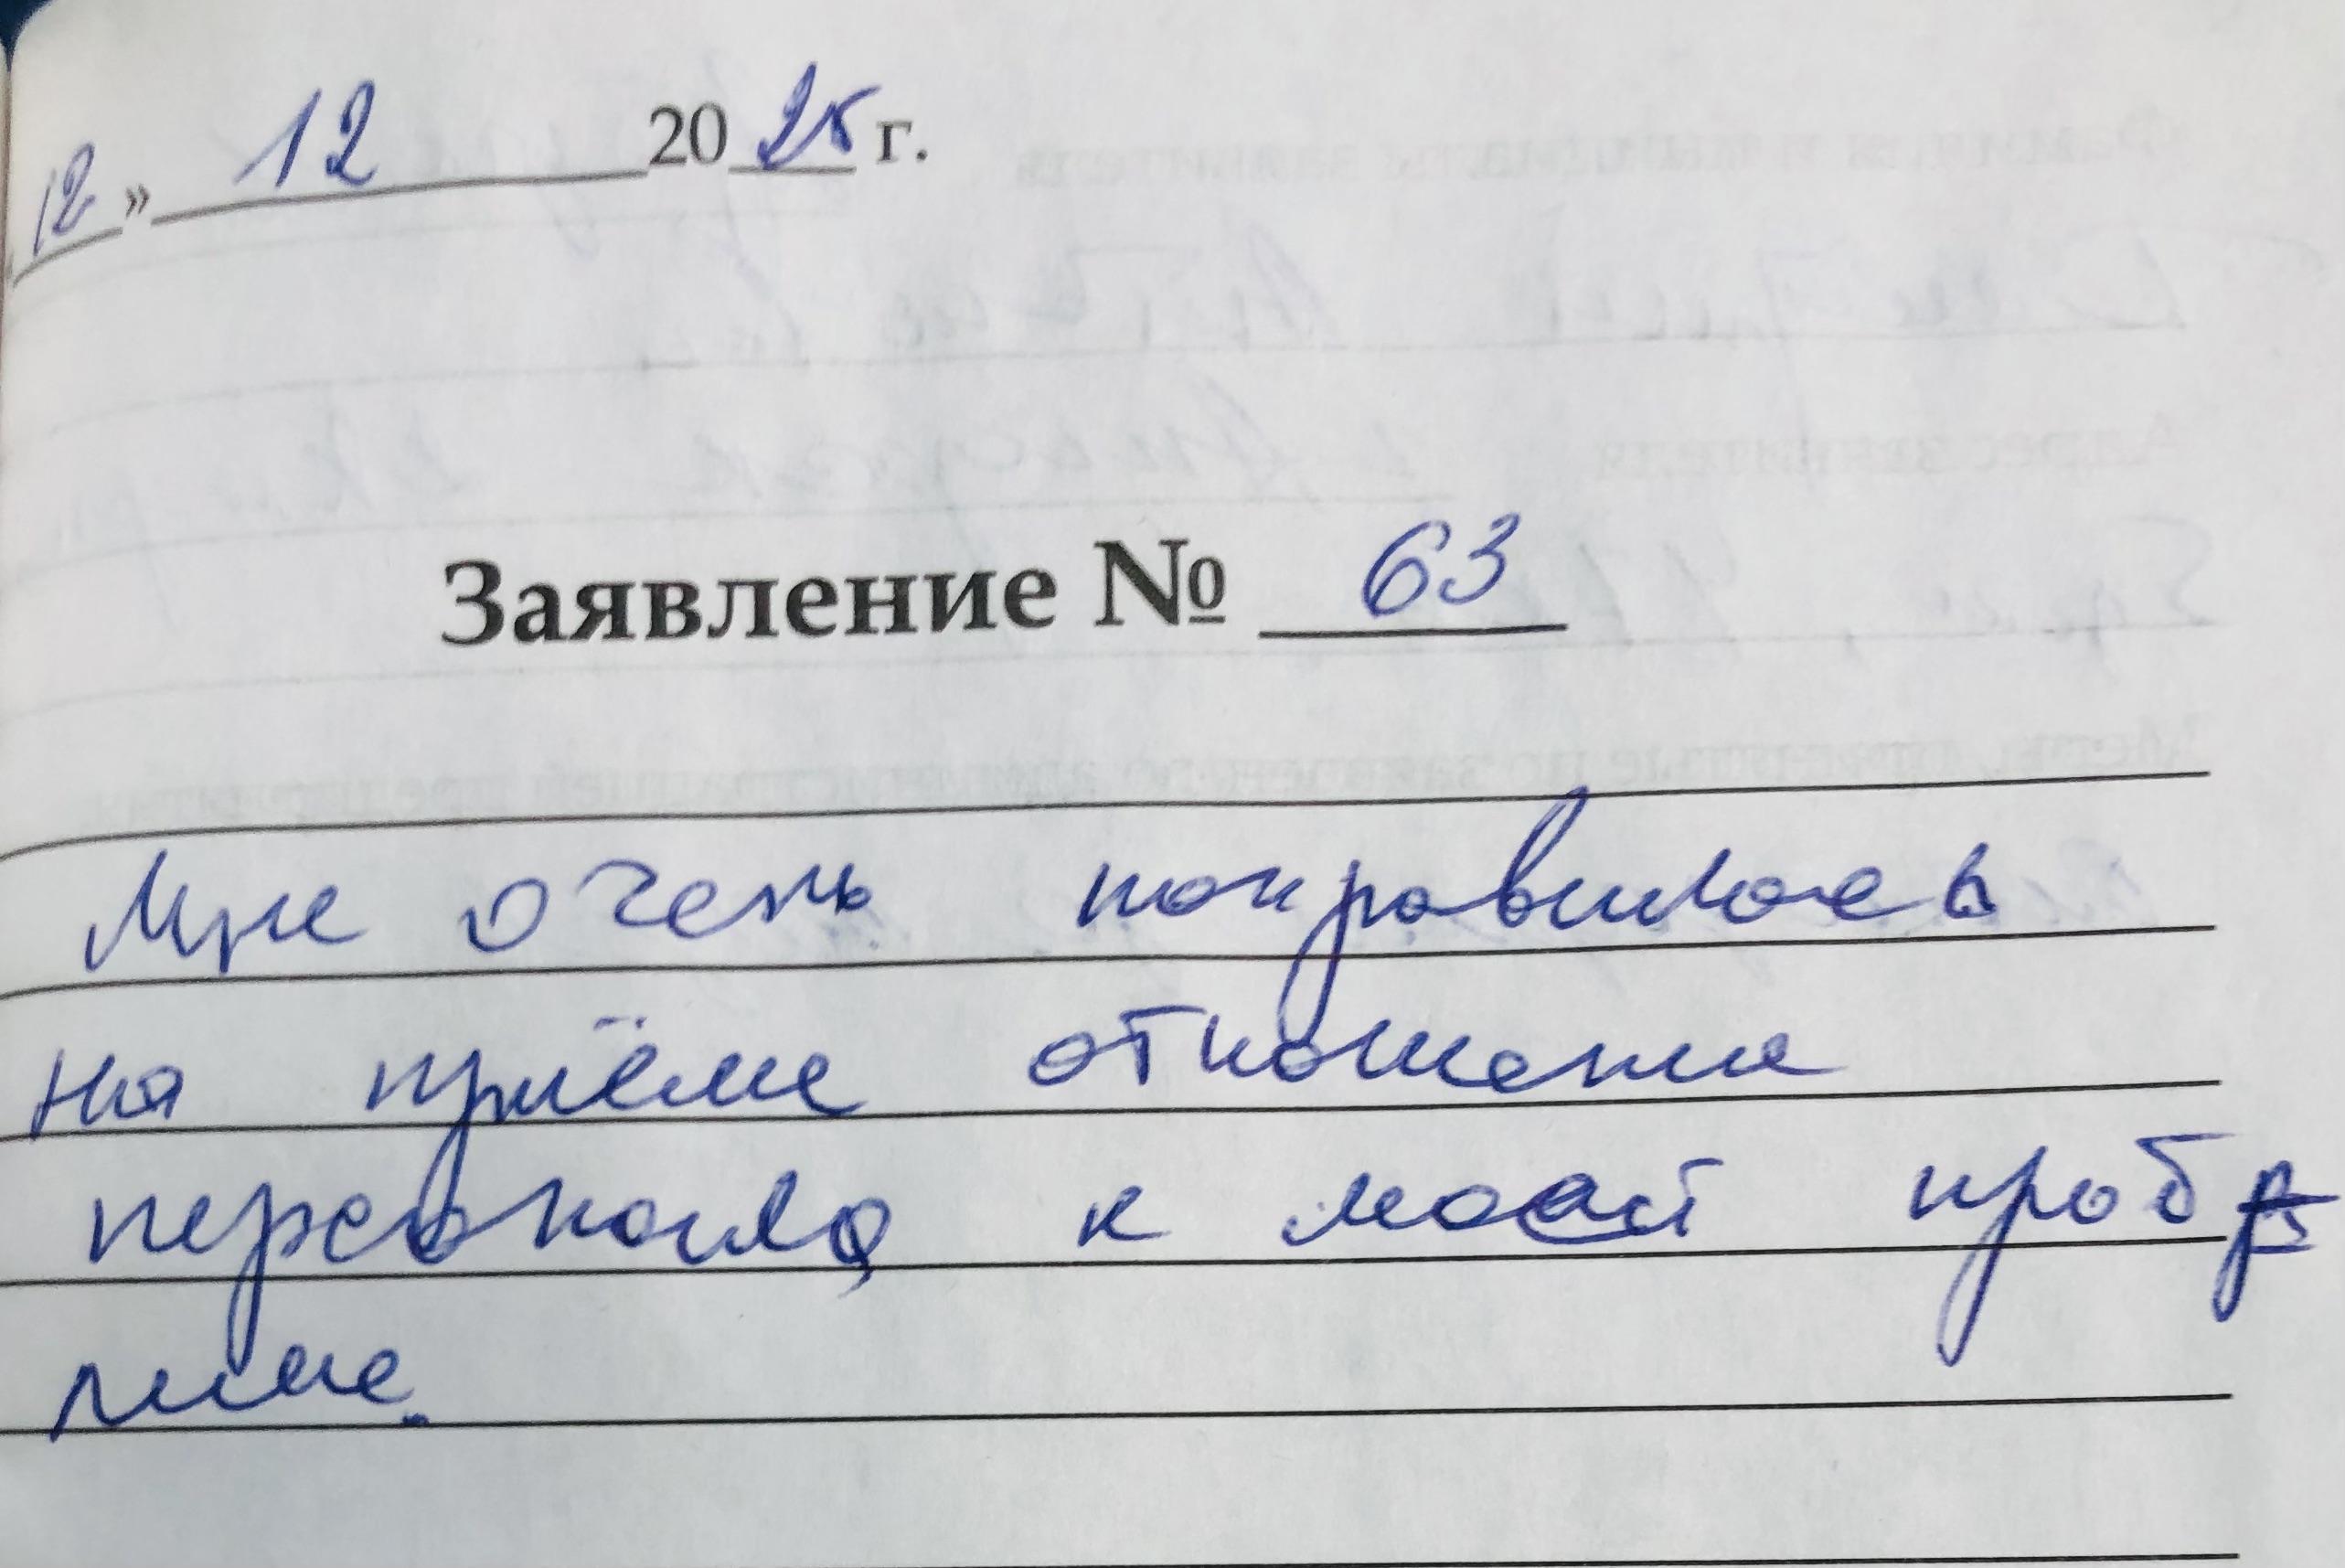 12» 12 2025 г.
Заявление № 63
Мне очень понравилось
на приёме отношение
персонала к моей проб
леме.